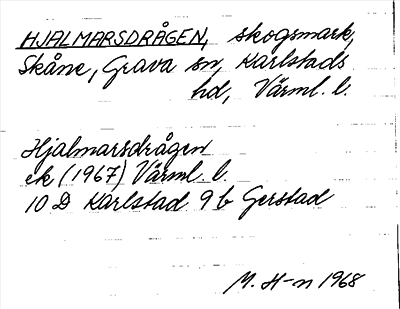 HJALMARSDRÅGEN, skogsmark,
Skåne, Grava sn, Karlstads
hd, Värml. l.
Hjalmarsdrågen
ek (1967) Värml. l.
10 D Karlstad 9 b Gerstad
M. H-n 1968